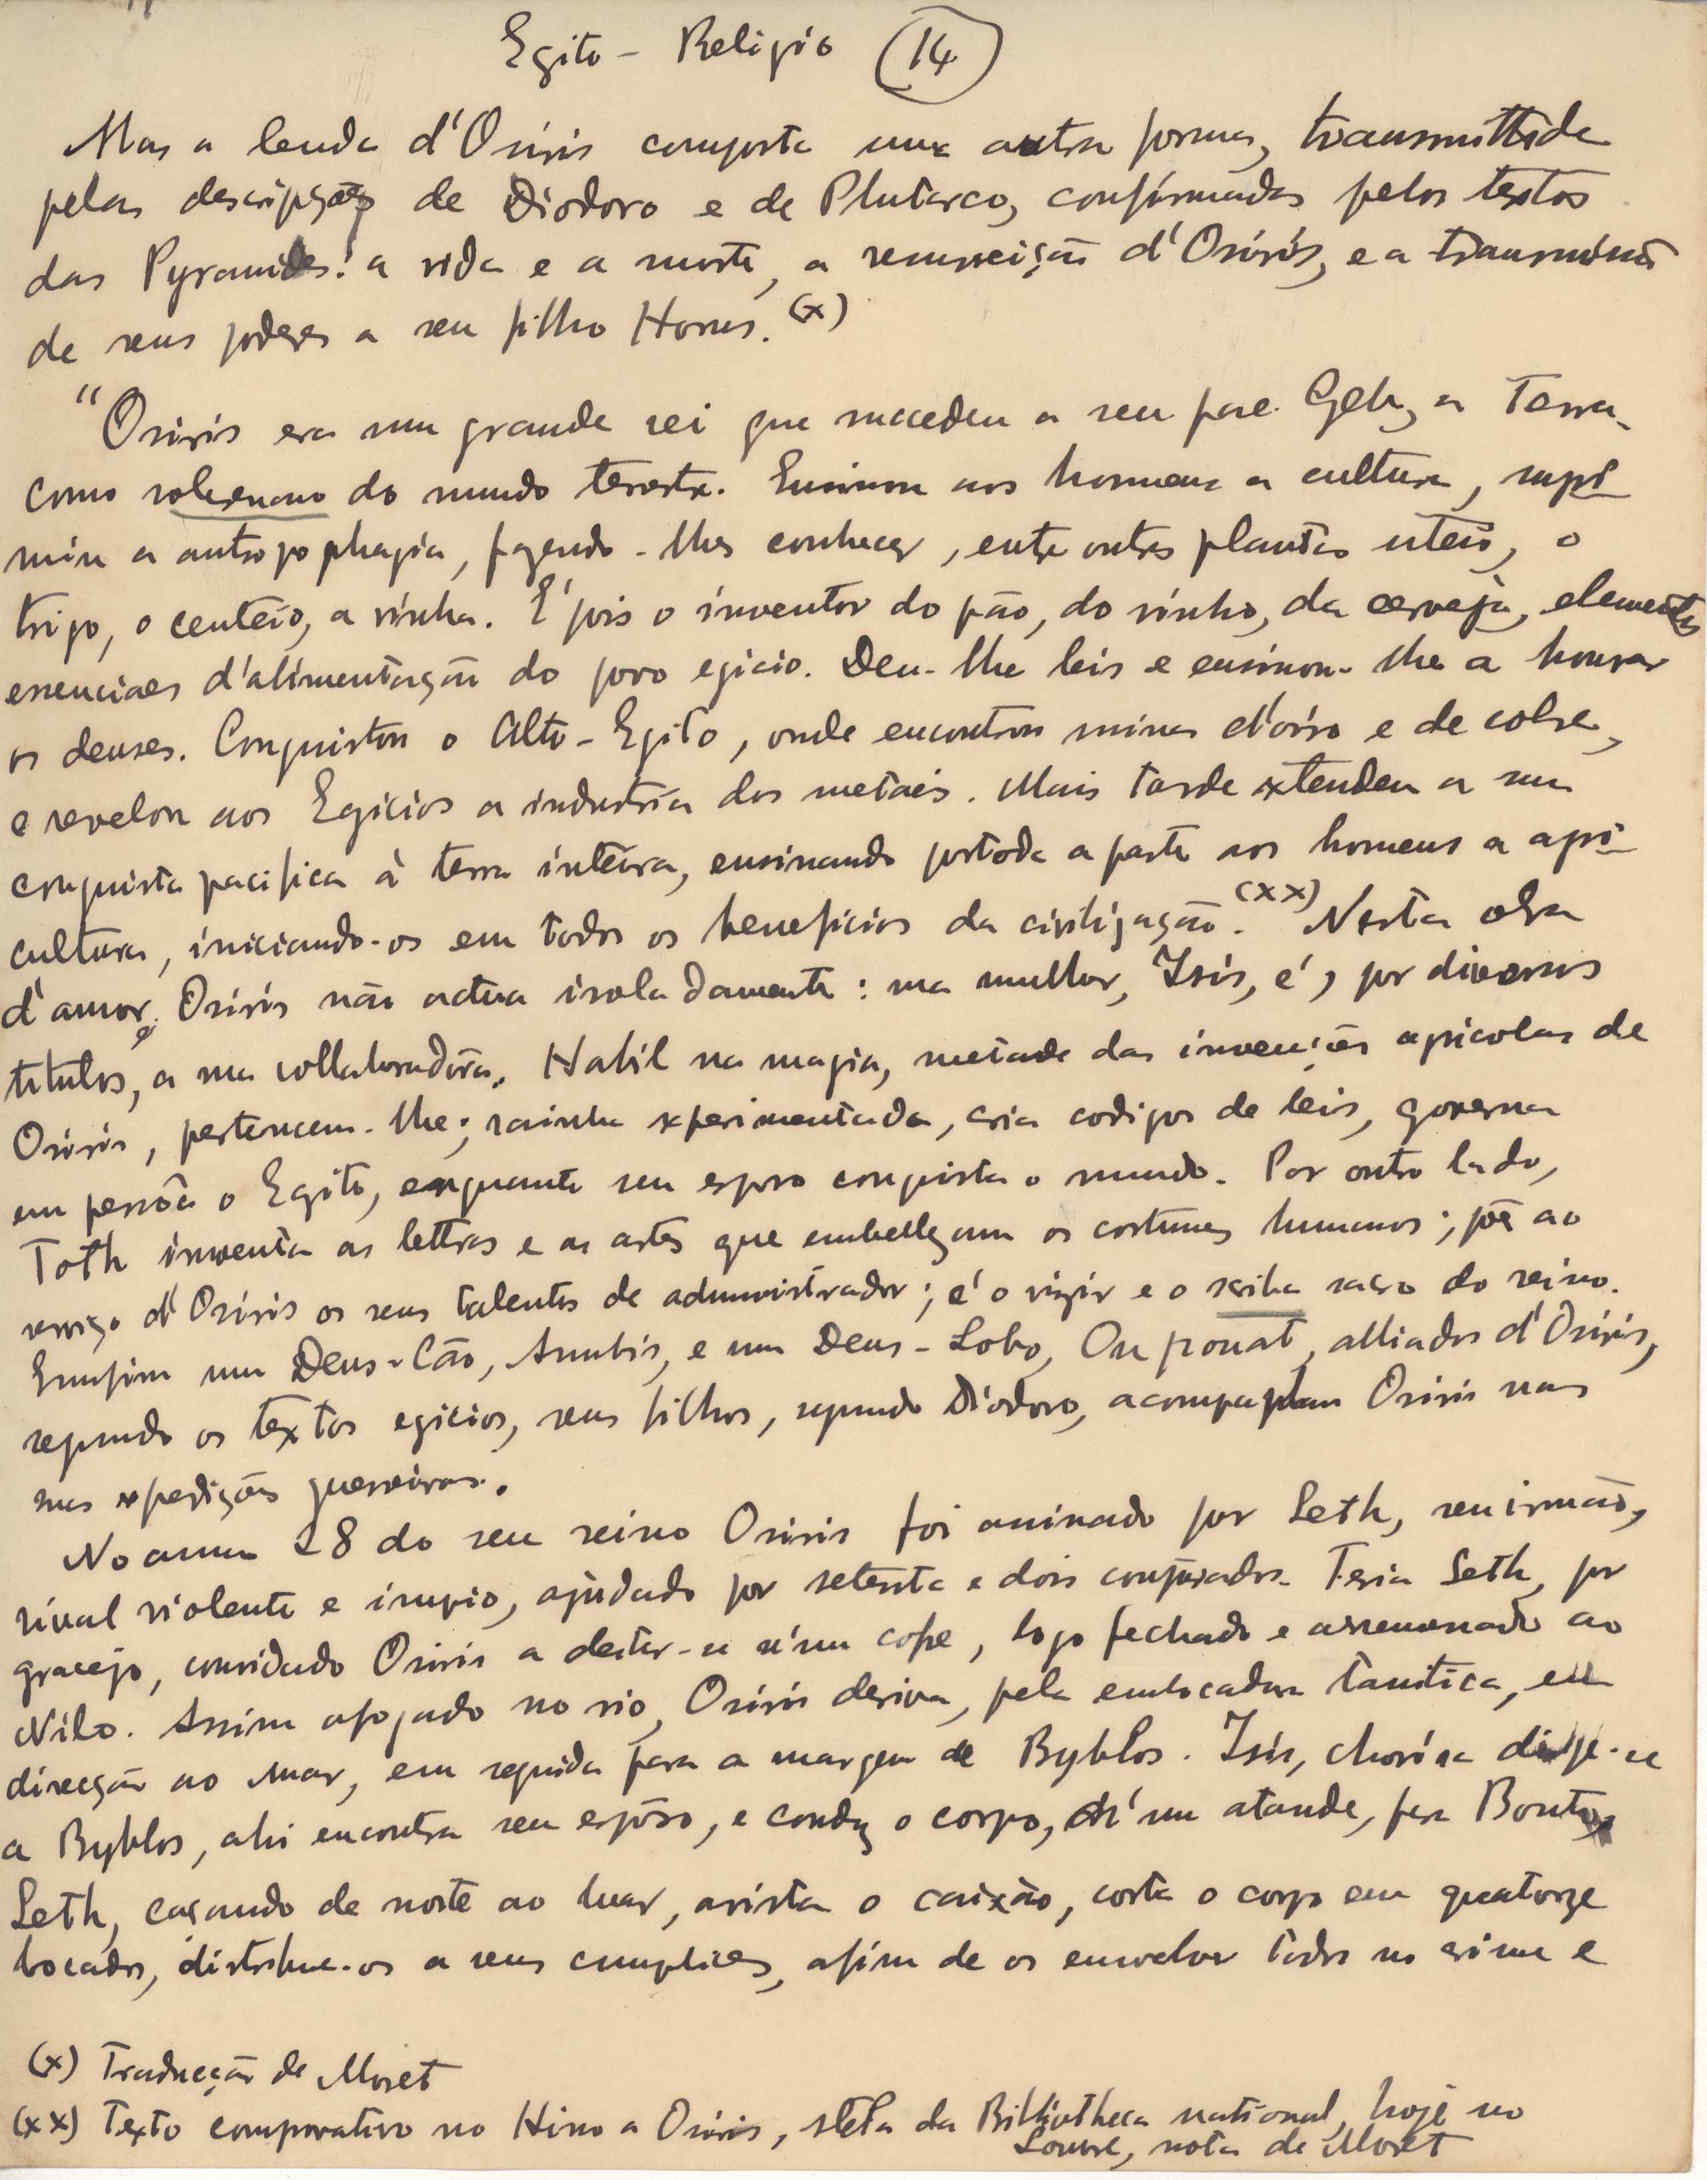 Egito - Religião (14)
Mas a lenda d'Osiris comporta uma outra forma, transmittida
pelas descripções de Diodoro e de Plutarco, confirmadas pelos textos
das Pyramides: a vida e a morte, a resurreição d'Osiris, e a transmissão
de seus poderes a seu filho Horus. (x)
"Osiris era um grande rei que succedeu a seu pae Geb, a Terra,
como soberano do mundo terrestre. Ensinou aos homens a cultura, supri-
miu a antropophagia, fazendo-lhes conhecer, entre outras plantas uteis, o
trigo, o centeio, a vinha. E' pois o inventor do pão, do vinho, da cerveja, elementos
essenciaes d'alimentação do povo egicio. Deu-lhe leis e ensinou-lhe a honrar
os deuses. Conquistou o Alto-Egito, onde encontrou minas d'oiro e de cobre,
e revelou aos Egicios a industria dos metais. Mais tarde extendeu a sua
conquista pacifica à terra inteira, ensinando por toda a parte aos homens a agri-
cultura, iniciando-os em todos os beneficios da civilização. (xx) Nesta obra
d'amor, Osiris não actua isoladamente: sua mulher, Isis, é, por diversos
titulos, a sua collaboradora. Habil na magia, metade das invenções agricolas de
Osiris, pertencem-lhe; rainha experimentada, cria codigos de leis, governa
em pessôa o Egito, enquanto seu esposo conquista o mundo. Por outro lado,
Toth inventa as lettras e as artes que embellezam os costumes humanos; põe ao
serviço d'Osiris os seus talentos de administrador; é o vizir e o scriba sacro do reino.
Emfim um Deus-Cão, Anubis, e um Deus-Lobo, Oupouat, alliados d'Osiris,
segundo os textos egicios, seus filhos, segundo Diodoro, acompanham Osiris nas
suas expedições guerreiras.
No anno 28 do seu reino Osiris foi assinado por Seth, seu irmão,
rival violento e impio, ajudado por setenta e dois conjurados. Teria Seth, por
gracejo, convidado Osiris a deitar-se n'um cofre, logo fechado e arremessado ao
Nilo. Assim afogado no rio, Osiris deriva, pela embocadura tanitica, em
direcção ao mar, em seguida para a margem de Byblos. Isis, chorosa dirige-se
a Byblos, ahi encontra seu espôso, e conduz o corpo, n'um ataude, para Bouto,
Seth, caçando de noite ao luar, avista o caixão, corta o corpo em quatorze
bocados, distribue-os a seus cumplices, afim de os envolver todos no crime e
(x) Traducção de Moret
(xx) Texto comparativo no Hino a Osiris, stela da Bibliotheca national, hoje no
Louvre, nota de Moret